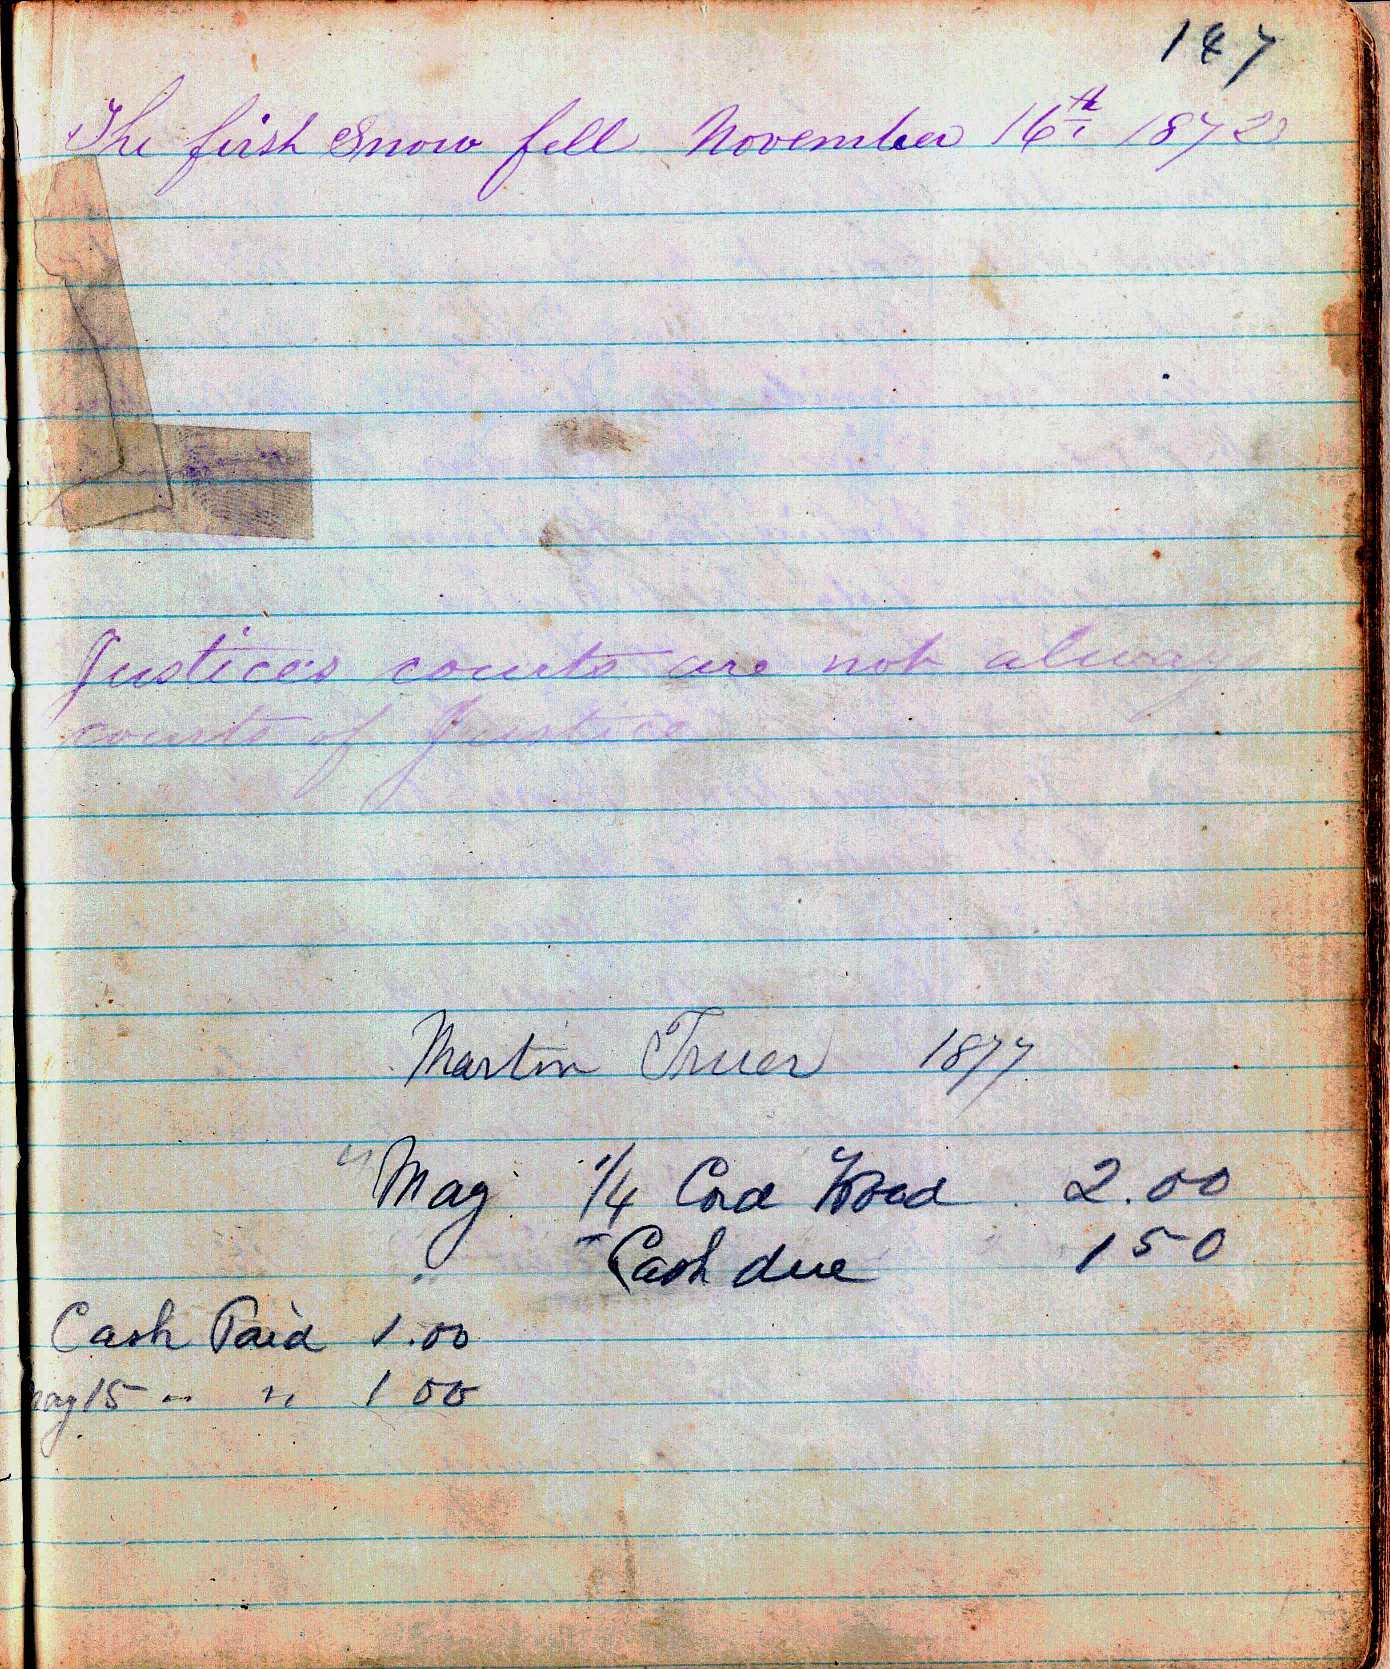 147
The first Snow fell November 16th 1872
Justices courts are not always
courts of Justice
Martin Truer 1877
" May 1/4 Cord Wood 2.00
" Cash due 1 50
Cash Paid 1.00
May 15 " " 1 00